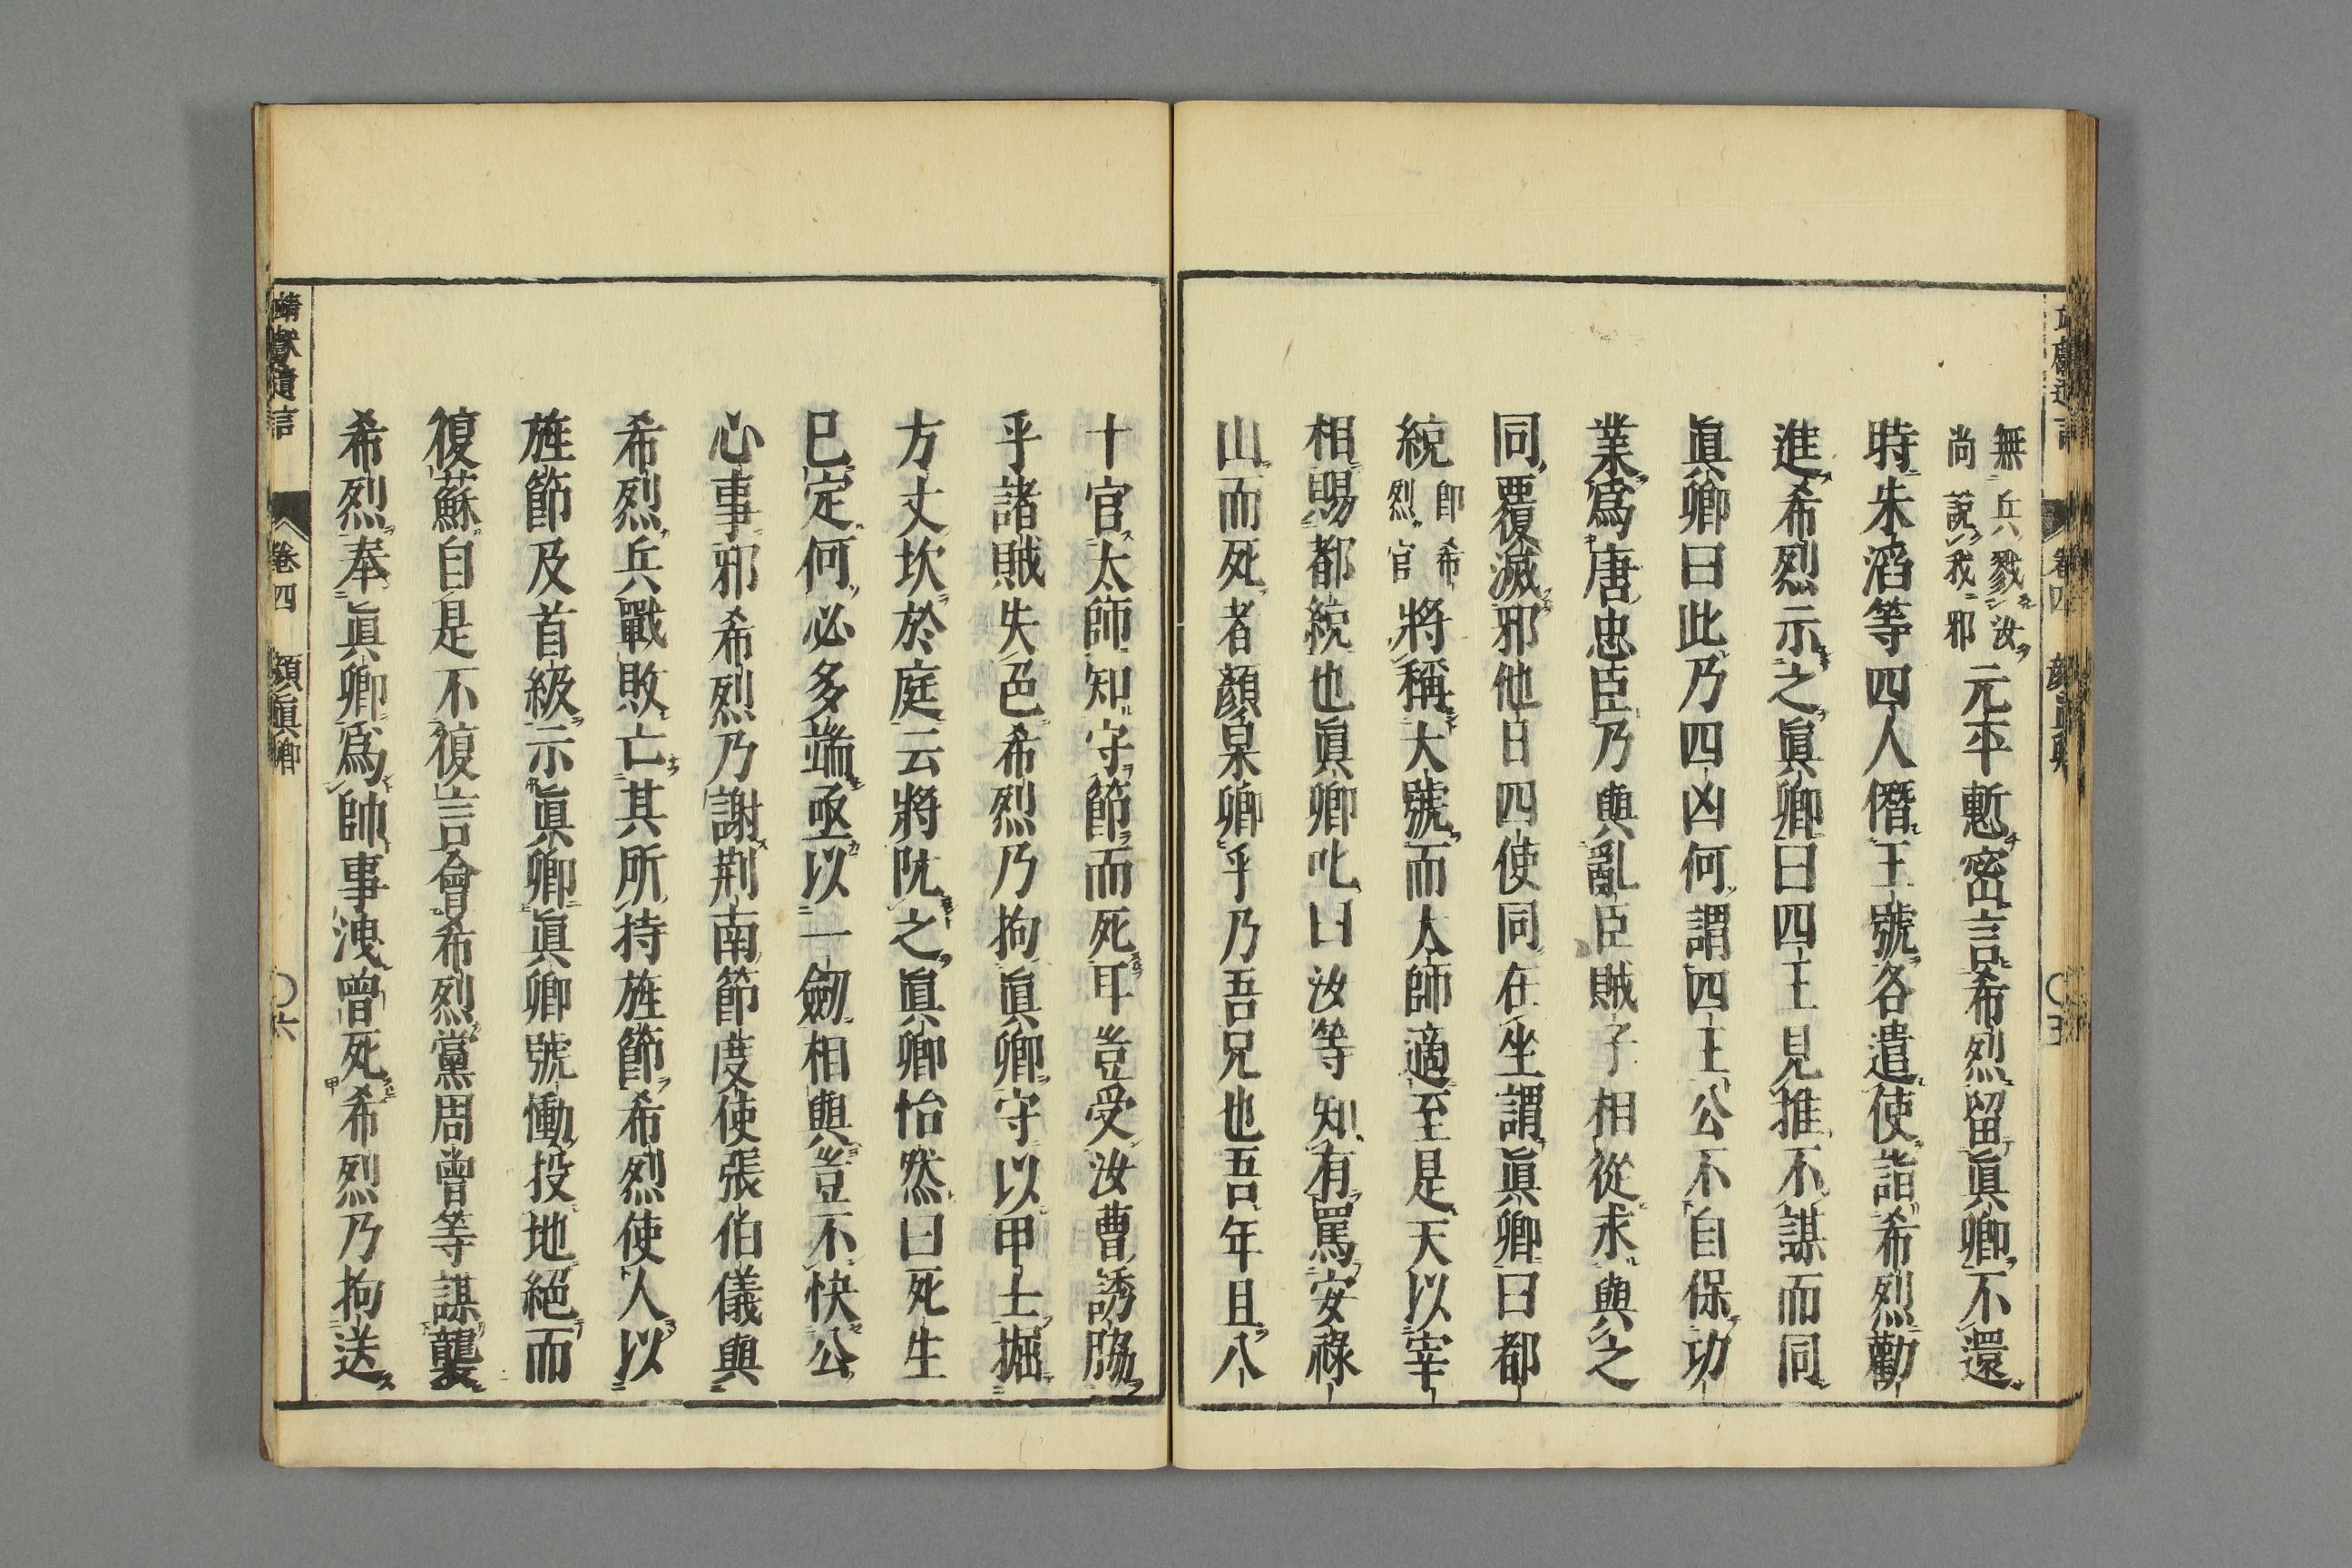 無兵戮汝
尚說我邪
元平慙密言希烈留眞卿不還
時朱滔等四人僭王號各遣使詣希烈勸
進希烈示之眞卿曰四王見推不謀而同
眞卿曰此乃四凶何謂四王公不自保功
業爲唐忠臣乃與亂臣賊子相從求與之
同覆滅邪他日四使同在坐謂眞卿曰都
統
卽希
烈官
將稱大號而太師適至是天以宰
相賜都統也眞卿叱曰汝等知有罵安祿
山而死者顏杲卿乎乃吾兄也吾年且八
十官太師知守節而死耳豈受汝曹誘脇
乎諸賊失色希烈乃拘眞卿守以甲士掘
方丈坎於庭云將阬之眞卿怡然曰死生
已定何必多端亟以一劒相與豈不快公
心事邪希烈乃謝荆南節度使張伯儀與
希烈兵戰敗亡其所持旌節希烈使人以
旌節及首級示眞卿眞卿號慟投地絕而
復蘇自是不復言會希烈黨周曾等謀襲
希烈奉眞卿爲帥事洩曾死希烈乃拘送
靖獻遺言 卷四 顏眞卿 〇六